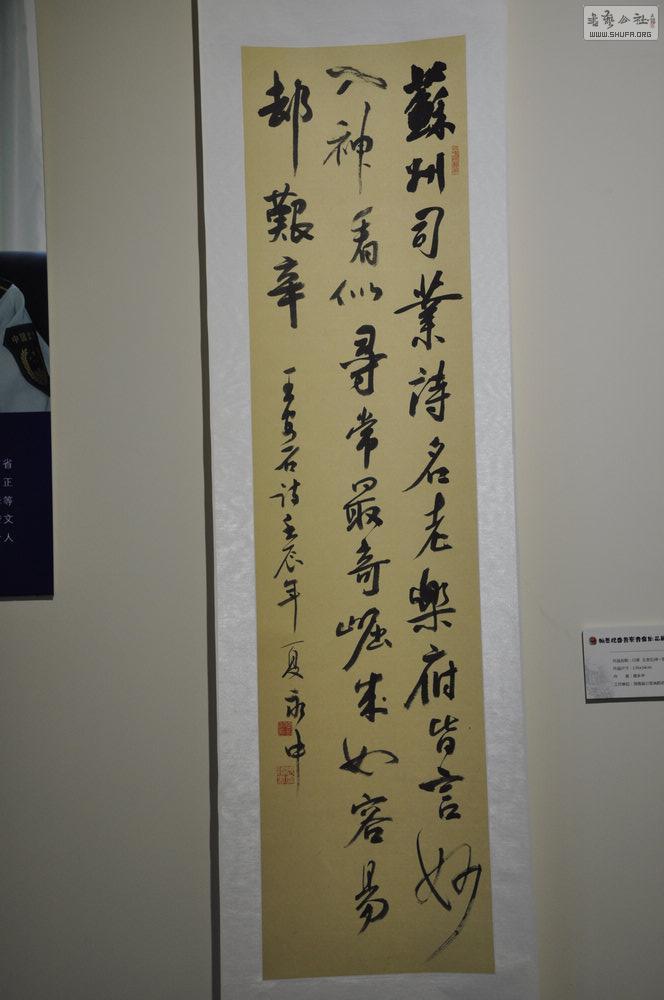 蘇州司業詩名老樂府皆言妙
入神看似尋常最奇崛成如容易
却艱辛
王安石诗壬辰年夏永中
书艺公社
WWW.SHUFA.ORG
中国
省
正
等
文
人